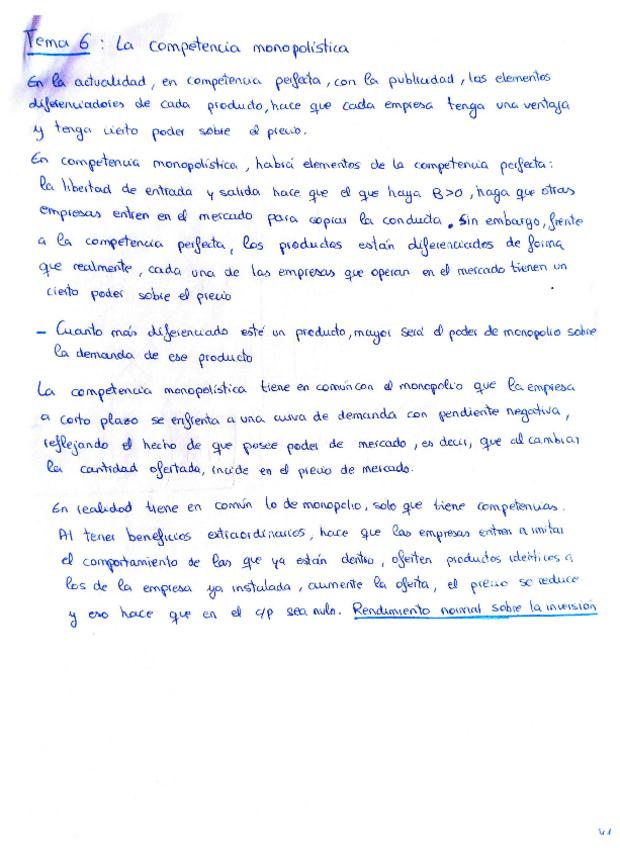 Tema 6 : La competencia monopolística
En la actualidad, en competencia perfecta, con la publicidad, los elementos
diferenciadores de cada producto, hace que cada empresa tenga una ventaja
y tenga cierto poder sobre el precio.
En competencia monopolística, habrá elementos de la competencia perfecta:
la libertad de entrada y salida hace que el que haya B>0, haga que otras
empresas entren en el mercado para copiar la conducta. Sin embargo, frente
a la competencia perfecta, los productos están diferenciados de forma
que realmente, cada una de las empresas que operan en el mercado tienen un
cierto poder sobre el precio
- Cuanto más diferenciado esté un producto, mayor será el poder de monopolio sobre
la demanda de ese producto
La competencia monopolística tiene en común con el monopolio que la empresa
a corto plazo se enfrenta a una curva de demanda con pendiente negativa,
reflejando el hecho de que posee poder de mercado, es decir, que al cambiar
la cantidad ofertada, incide en el precio de mercado.
En realidad tiene en común lo de monopolio, solo que tiene competencias.
Al tener beneficios extraordinarios, hace que las empresas entren a imitar
el comportamiento de las que ya están dentro, oferten productos idénticos a
los de la empresa ya instalada, aumente la oferta, el precio se reduce
y eso hace que en el c/p sea nulo. Rendimiento normal sobre la inversión